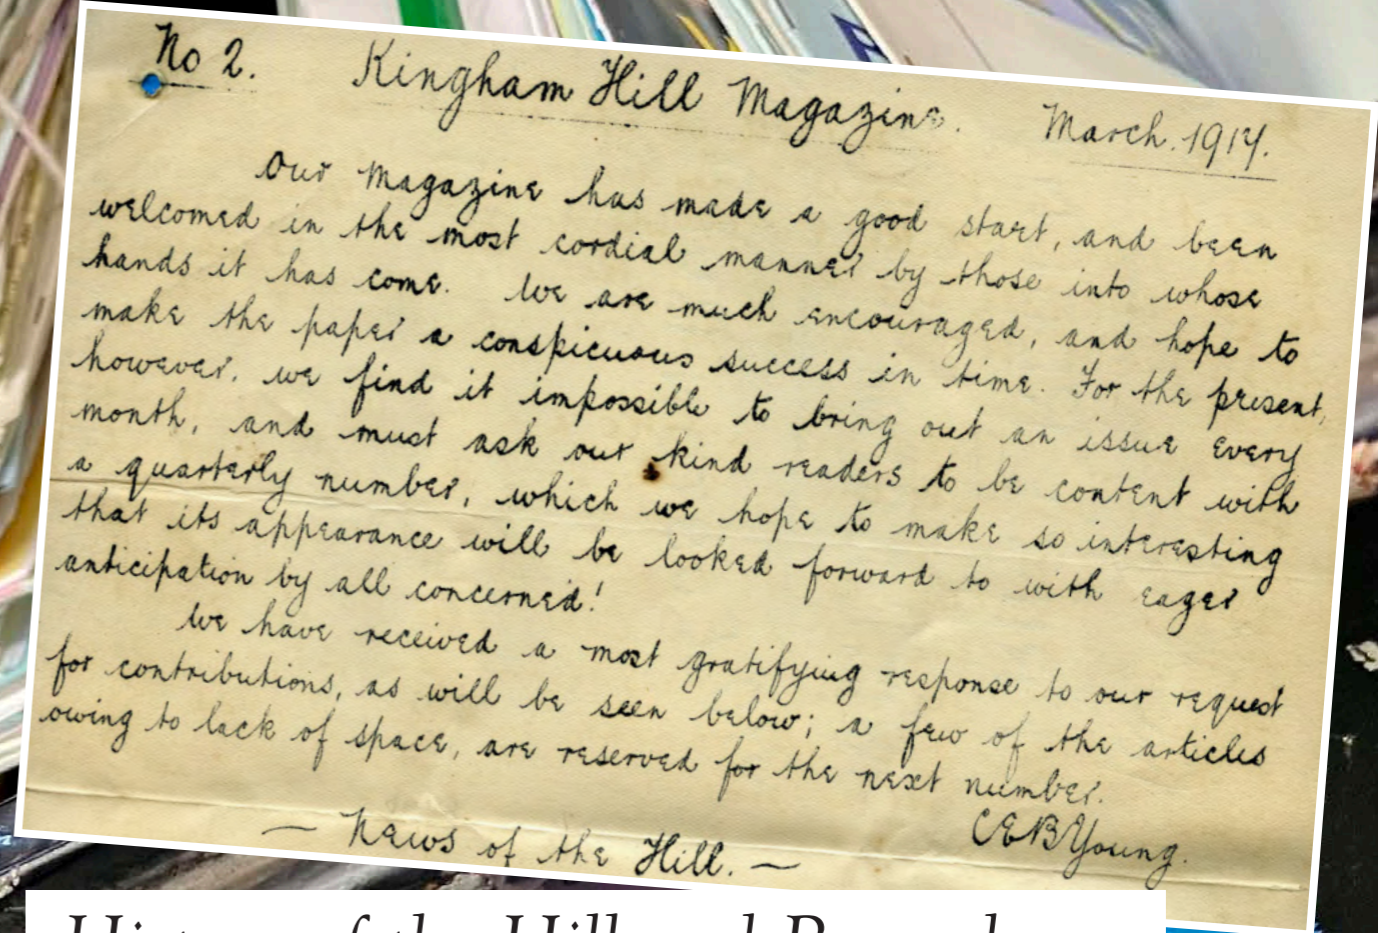 No 2. Kingham Hill Magazine. March. 1914.
Our Magazine has made a good start, and been
welcomed in the most cordial manner by those into whose
hands it has come. We are much encouraged, and hope to
make the paper a conspicuous success in time. For the present,
however, we find it impossible to bring out an issue every
month, and must ask our kind readers to be content with
a quarterly number, which we hope to make so interesting
that its appearance will be looked forward to with eager
anticipation by all concerned!
We have received a most gratifying response to our request
for contributions, as will be seen below; a few of the articles
owing to lack of space, are reserved for the next number.
CEBYoung.
— News of the Hill. —
History of the Hill and